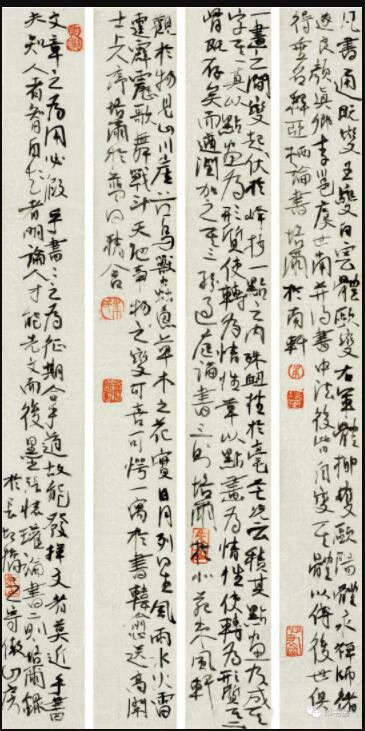 凡書通既變王變白雲體歐變右軍體柳變歐陽體永禪師褚
遂良顏真卿李邕虞世南并得書中法後皆自變其體以傳後世俱
得垂名釋亞栖論書培爾於南軒
一畫之間變起伏於峰杪一點之內殊衄挫於毫芒況云積其點畫乃成其
字真以點畫為形質使轉為情性草以點畫為情性使轉為形質
骨既存矣而遒潤加之孫過庭論書三則培爾於小菀來風軒
觀於物見山川崖谷鳥獸蟲魚草木之花實日月列星風雨水火雷
霆霹靂歌舞戰斗天地事物之變可喜可愕寓於書韓愈送高閑
上人序培爾於精舍
文章之為用必假乎書書之為征期合乎道故能發揮文者莫近乎書
夫知人者智自知者明論人才能先文而後墨張懷瓘論書二則培爾錄
於長山房